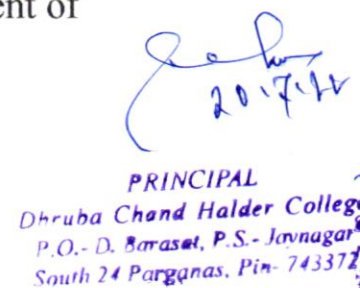 ent of
20.7.22
PRINCIPAL
Dhruba Chand Halder College
P.O.- D. Barasat, P.S.- Jaynagar
South 24 Parganas, Pin- 743372